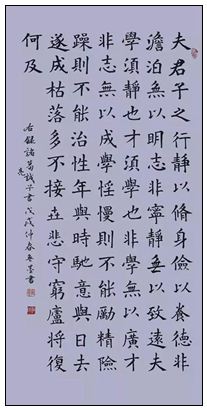 夫君子之行靜以脩身儉以養德非
澹泊無以明志非寧靜無以致遠夫
學須靜也才須學也非學無以廣才
非志無以成學淫慢則不能勵精險
躁則不能治性年與時馳意與日去
遂成枯落多不接世悲守窮廬將復
何及
右錄諸葛亮誡子書戊戌仲春墨書